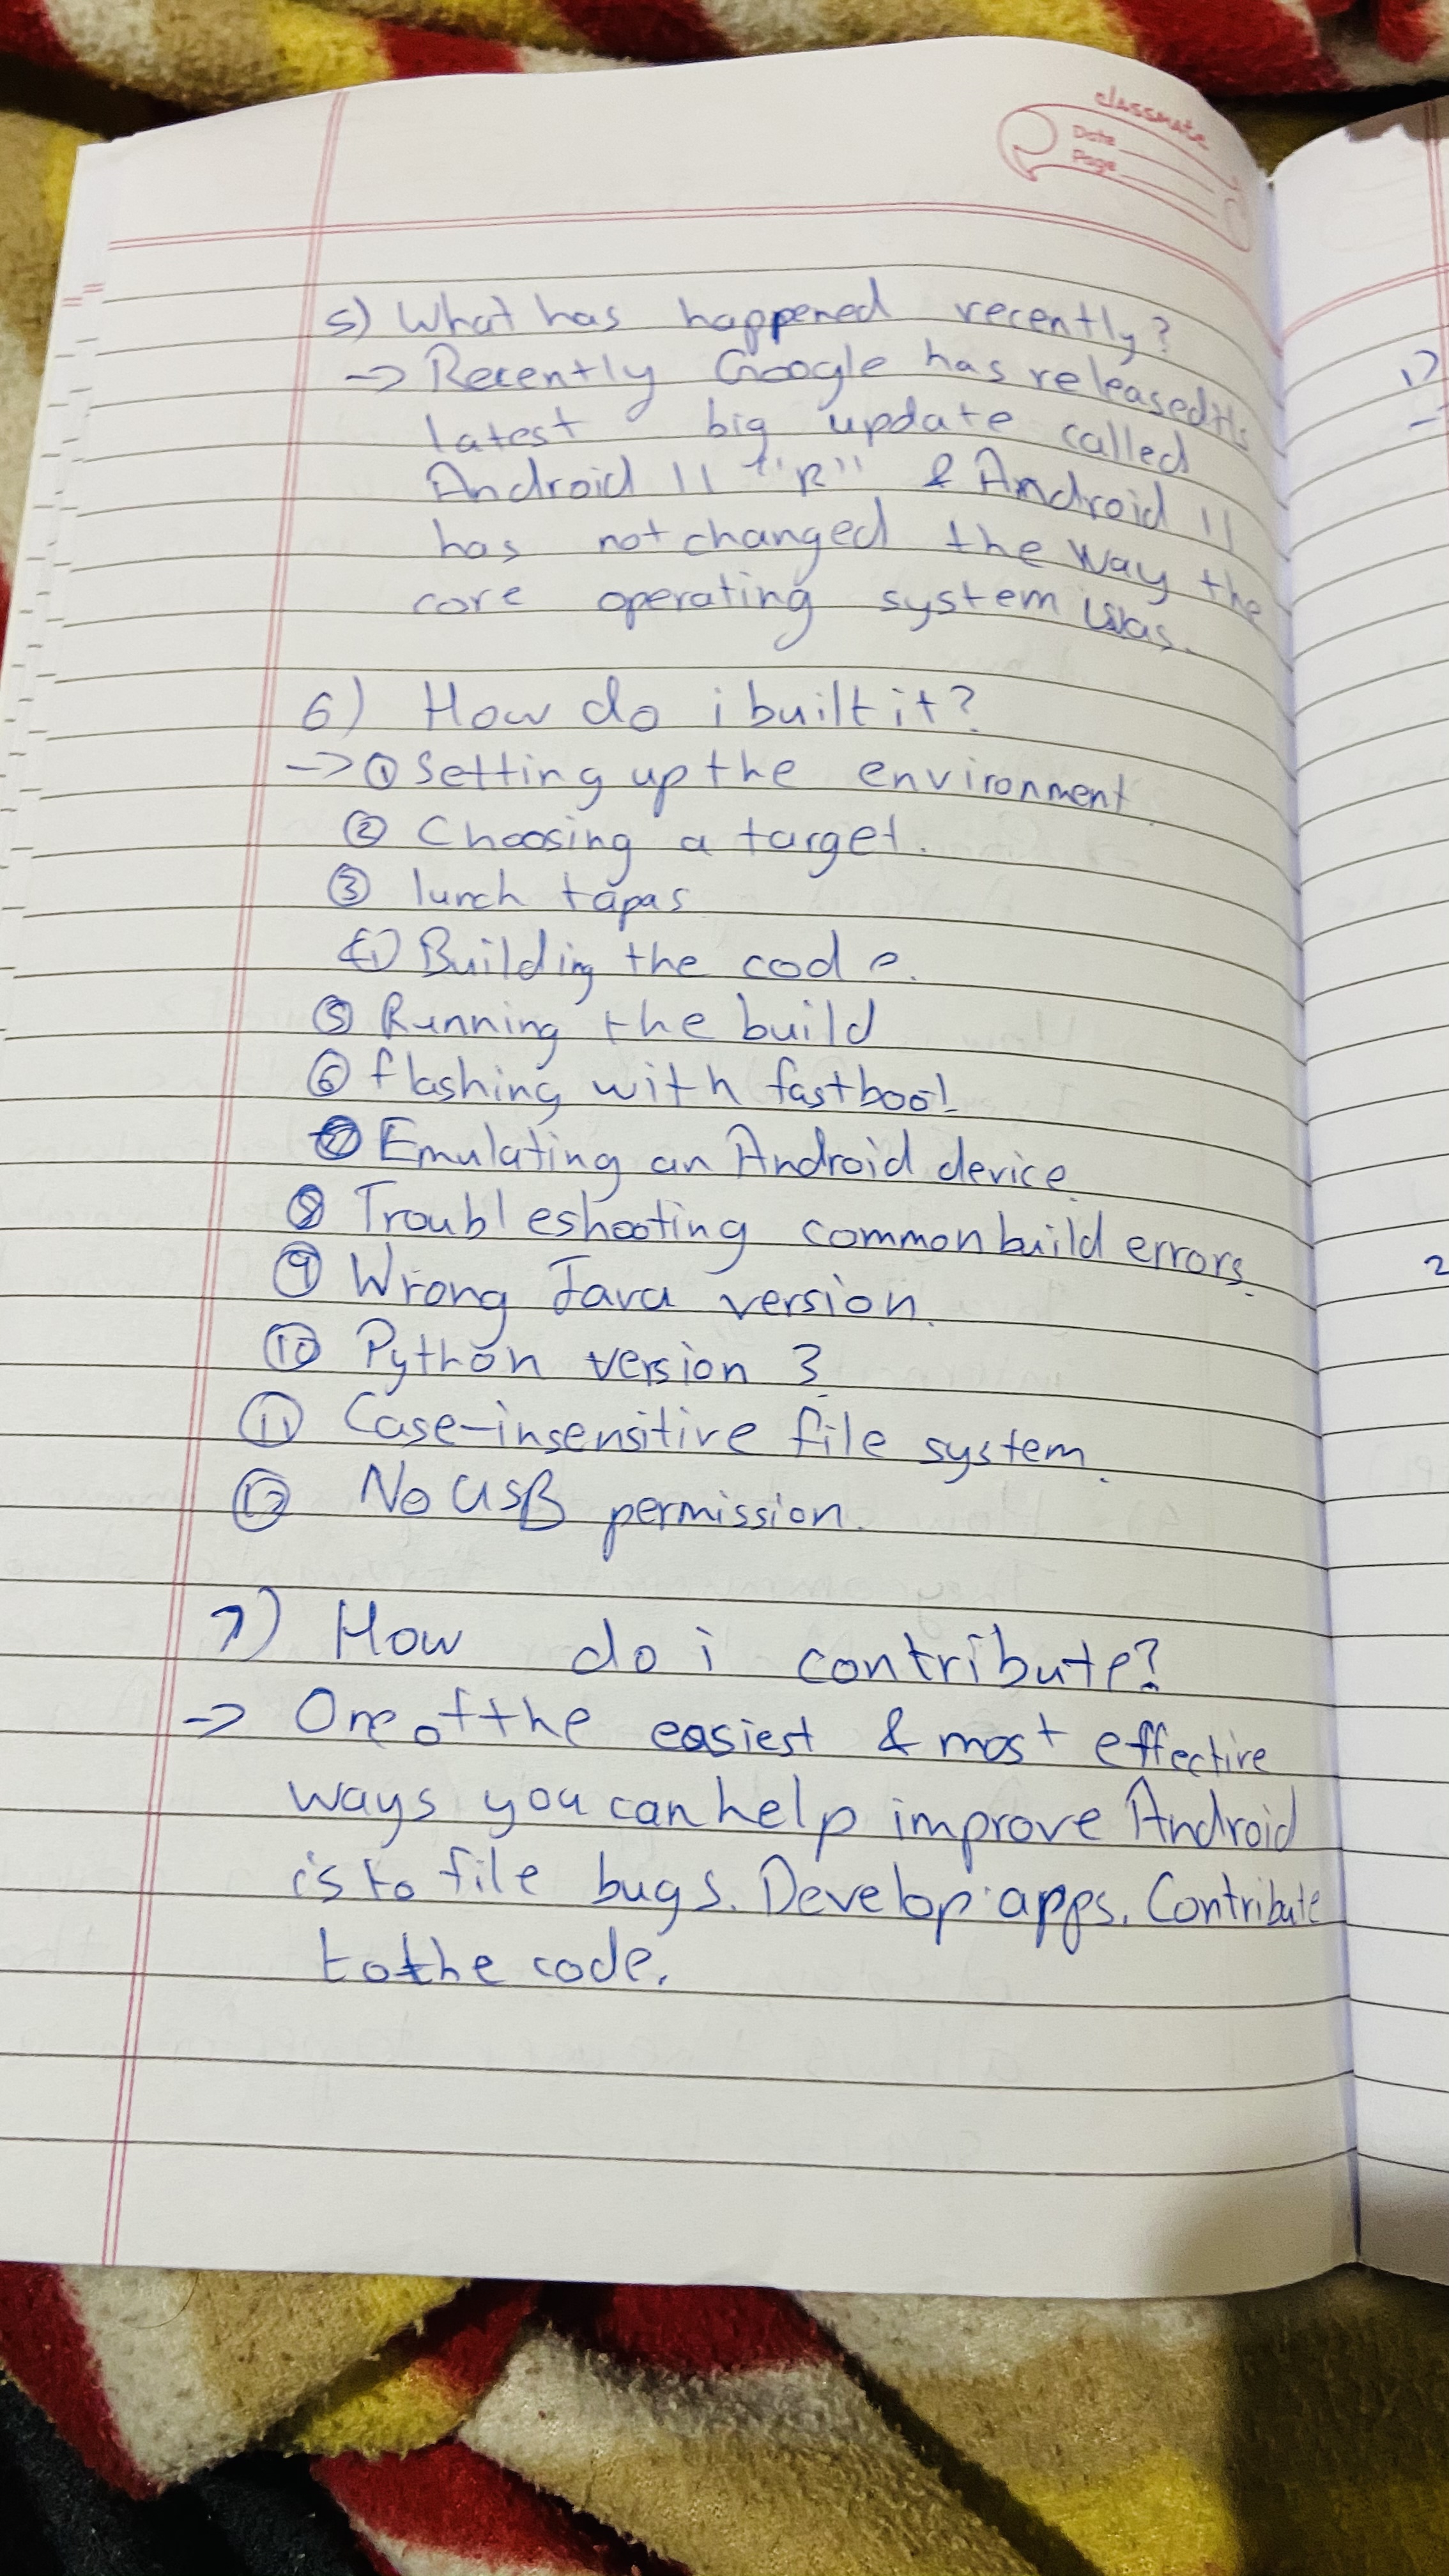 classmate
Date
Page
5) What has happened recently?
-> Recently Google has released its
latest big update called
Android 11 "R" & Android 11
has not changed the way the
core operating system was.
6) How do i built it?
-> ① Setting up the environment
② Choosing a target.
③ lunch tapas
④ Building the code.
⑤ Running the build
⑥ flashing with fastboot
⑦ Emulating an Android device.
⑧ Troubleshooting common build errors.
⑨ Wrong Java version.
⑩ Python version 3.
⑪ Case-insensitive file system.
⑫ No USB permission.
7) How do i contribute?
-> One of the easiest & most effective
ways you can help improve Android
is to file bugs. Develop apps. Contribute
to the code.
1)
2